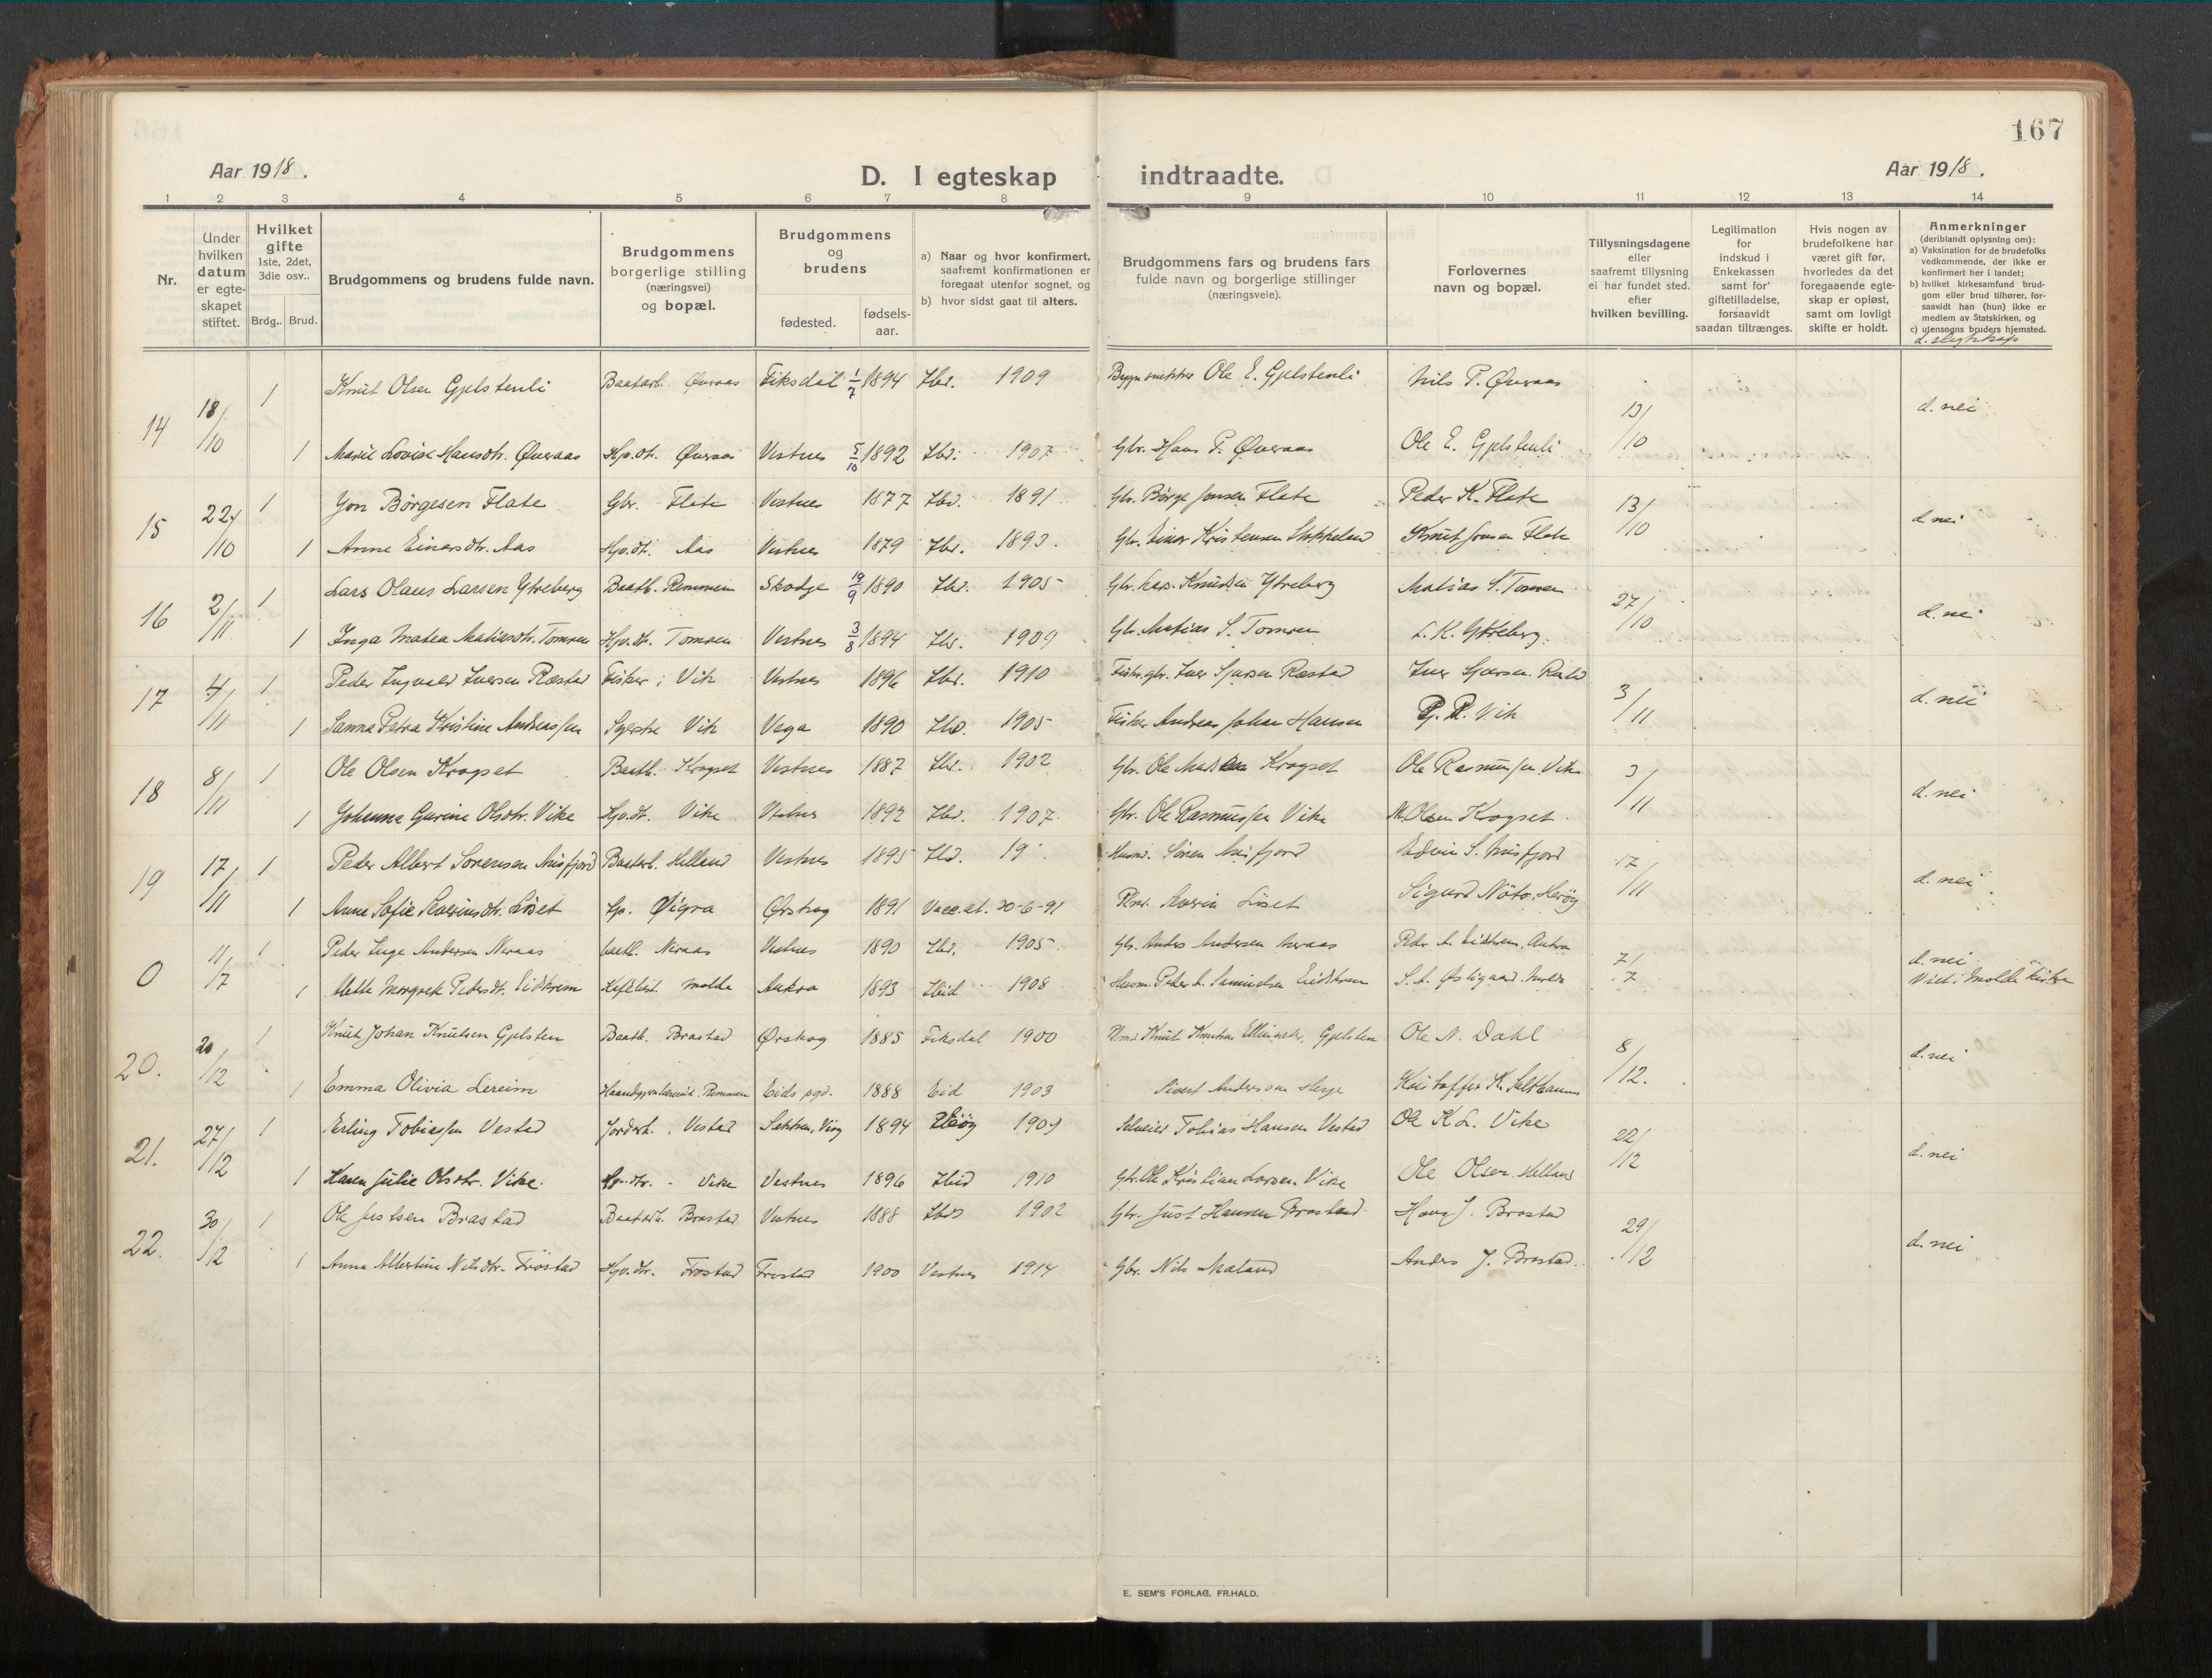 167
Aar 1918.
D. I egteskap indtraadte.
Aar 1918.
1 2 3 4 5 6 7 8 9 10 11 12 13 14
Nr.
Under hvilken datum er egte-skapet stiftet.
Hvilket gifte 1ste, 2det, 3die osv..
Brdg.. Brud.
Brudgommens og brudens fulde navn.
Brudgommens borgerlige stilling (næringsvei) og bopæl.
Brudgommens og brudens
fødested.
fødsels-aar.
a) Naar og hvor konfirmert, saafremt konfirmationen er foregaat utenfor sognet, og
b) hvor sidst gaat til alters.
Brudgommens fars og brudens fars fulde navn og borgerlige stillinger (næringsveie).
Forlovernes navn og bopæl.
Tillysningsdagene eller saafremt tillysning ei har fundet sted, efter hvilken bevilling.
Legitimation for indskud i Enkekassen samt for giftetilladelse, forsaavidt saadan tiltrænges.
Hvis nogen av brudefolkene har været gift før, hvorledes da det foregaaende egte-skap er opløst, samt om lovligt skifte er holdt.
Anmerkninger (deriblandt oplysning om):
a) Vaksination for de brudefolks vedkommende, der ikke er konfirmert her i landet;
b) hvilket kirkesamfund brud-gom eller brud tilhører, for-saavidt han (hun) ikke er medlem av Statskirken, og
c) utensogns bruders hjemsted.
d. slegtskap
14 18/10 1 Knut Olsen Gjelstenli Baatarb. Øveraas Fiksdal 1/7 1894 Ibd. 1909 Ole E. Gjelstenli Nils P. Øveraas 13/10 d. nei
1 Marie Lovise Hansdtr. Øveraas Hjv.dt. Øveraas Vestnes 5/10 1892 Ibd. 1907 Gbr. Hans P. Øveraas Ole E. Gjelstenli
15 22/10 1 Jon Børgesen Flate Gbr. Flate Vestnes 1877 Ibd. 1891 Gbr. Børge Jonsen Flate Peder K. Flate 13/10 d. nei
1 Anne Einersdtr. Aas Hjv.dt. Aas Vestnes 1879 Ibd. 1893. Gbr. Einar Kristensen Knut Jonsen Flate
16 2/11 1 Lars Olaus Larsen Ytreberg Baatb. Remmem Skodje 19/9 1890 Ibd. 1905 Gbr. Lars Knudsen Ytreberg Matias S. Tomren 27/10 d. nei
1 Inga Matea Matiasdtr. Tomren Hjv.dt. Tomren Vestnes 3/8 1894 Ibd. 1909 Gbr. Matias S. Tomren L. K. Ytreberg.
17 4/11 1 Peder Ingvald Iversen Ræstad Fisker i Vik Vestnes 1896 Ibd. 1910 Fisker, gbr. Iver Ræstad Iver 3/11 d. nei
1 Sanna Petra Kristine Andreassen Vik Vega 1890 Ibd. 1905 Fisker Andreas Johan Hansen P. R. Vik
18 8/11 1 Ole Olsen Kragset Baatb. Kragset Vestnes 1887 Ibd. 1902 Gbr. Ole Kragset Ole Rasmussen Vike 3/11 d. nei
1 Johanna Gurine Olsdtr. Vike Hjv.dt. Vike Vestnes 1892 Ibd. 1907 Gbr. Ole Rasmussen Vike M. Olsen Kragset.
19 17/11 1 Peder Albert Sørensen Misfjord Baatarb. Helland Vestnes 1895 Ibd. 19 Søren Misfjord Edvin S. Misfjord 17/11 d. nei
1 Anne Sofie Severinsdtr. Liset Hp. Øigra Ørskog 1891 Vacc.at. 20-6-91 Severin Liset Sigurd Nöto, Herøy
0 11/7 1 Peder Inge Andersen Neraas Baatb. Neraas Vestnes 1890 Ibd. 1905 Gbr. Anders Andersen Neraas Peder A. Eidskrem, Aukra 7/7 d. nei
1 Mette Margrete Pedersdt. Eidskrem Molde Aukra 1893 Ibid 1908 Husm. Peder A. Samuelsen Eidskrem S. A. Østigaard, Molde Viet i Molde kirke
20. 20/12 1 Knut Johan Knutsen Gjelsten Baatb. Brastad Ørskog 1885 Fiksdal 1900 Knut Knutsen Gjelsten Ole N. Dahl 8/12. d. nei
1 Emma Olivia Lereim Remmem Eids pgd. 1888 Eid 1903 Sivert Anderssen Kristoffer K. Salthamn
21. 27/12 1 Erling Tobiassen Vestad Jorderb. Vestad Sekken, Veøy 1894 Veøy 1909 Selveier Tobias Hansen Vestad Ole K. L. Vike 22/12 d. nei
1 Karen Julie Olsdtr. Vike. Hjv.dtr. - Vike Vestnes 1896 Ibid 1910 Gbr. Ole Kristian Larsen Vike Ole Olsen Helland
22. 30/12 1 Ole Justsen Brastad Baatarb. Brastad Vestnes 1888 Ibd 1902 Gbr. Just Hansen Brastad Hans J. Brastad 29/12 d. nei
1 Anna Albertine Nilsdtr. Frostad Hjv.dtr. Frostad Frostad 1900 Vestnes 1914 Gbr. Nils Anders J. Brastad.
E. SEM'S FORLAG, FR.HALD.